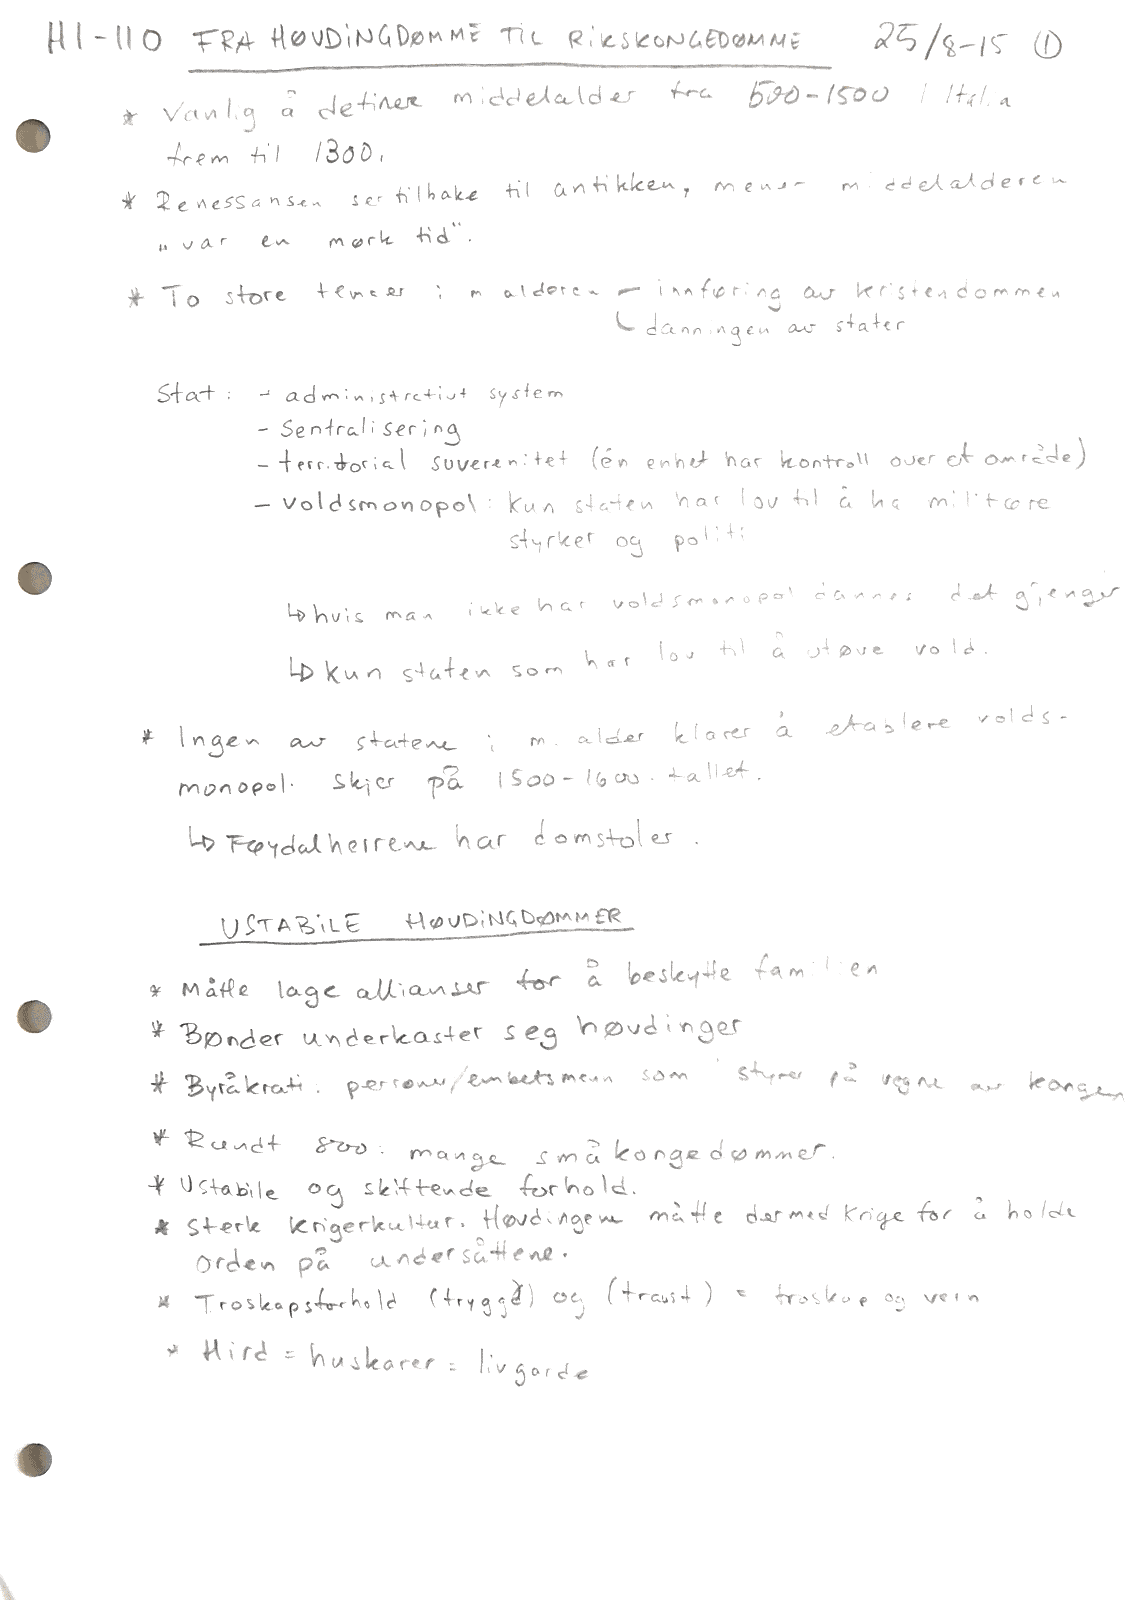 HI-110 FRA HØVDINGDØMME TIL RIKSKONGEDØMME 25/8-15 ①
* Vanlig å definer middelalder fra 500-1500 / Italia
frem til 1300.
* Renessansen ser tilbake til antikken, mener middelalderen
"var en mørk tid".
* To store i m alderen - innføring av kristendommen
↳ danningen av stater
Stat: - administrativt system
- Sentralisering
- territorial suverenitet (én enhet har kontroll over et område)
- voldsmonopol: Kun staten har lov til å ha militære
styrker og politi
↳ hvis man ikke har voldsmonopol dannes det gjenger
↳ Kun staten som har lov til å utøve vold.
* Ingen av statene i m. alder klarer å etablere volds-
monopol. Skjer på 1500-1600-tallet.
↳ Føydalherrene har domstoler.
USTABILE HØVDINGDØMMER
* Måtte lage allianser for å beskytte familien
* Bønder underkaster seg høvdinger
* Byråkrati: personer/embetsmenn som styrer på vegne av kongen
* Rundt 800: mange småkongedømmer.
* Ustabile og skiftende forhold.
* Sterk krigerkultur. Høvdingene måtte dermed krige for å holde
orden på undersåttene.
* Troskapsforhold (tryggð) og (traust) = troskap og vern
* Hird = huskarer = livgarde